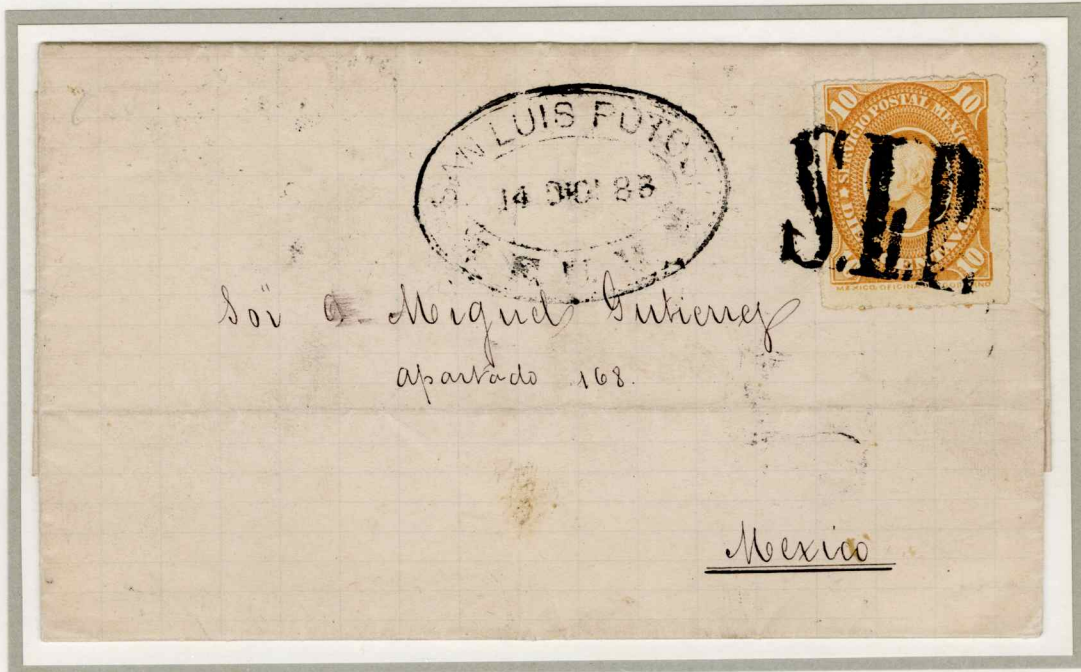 SAN LUIS POTOSI
14 DIC 83
10 10
SERVICIO POSTAL MEXICANO
DIEZ CENTAVOS
10
S.L.P.
Miguel Gutierrez
apartado 168.
Mexico